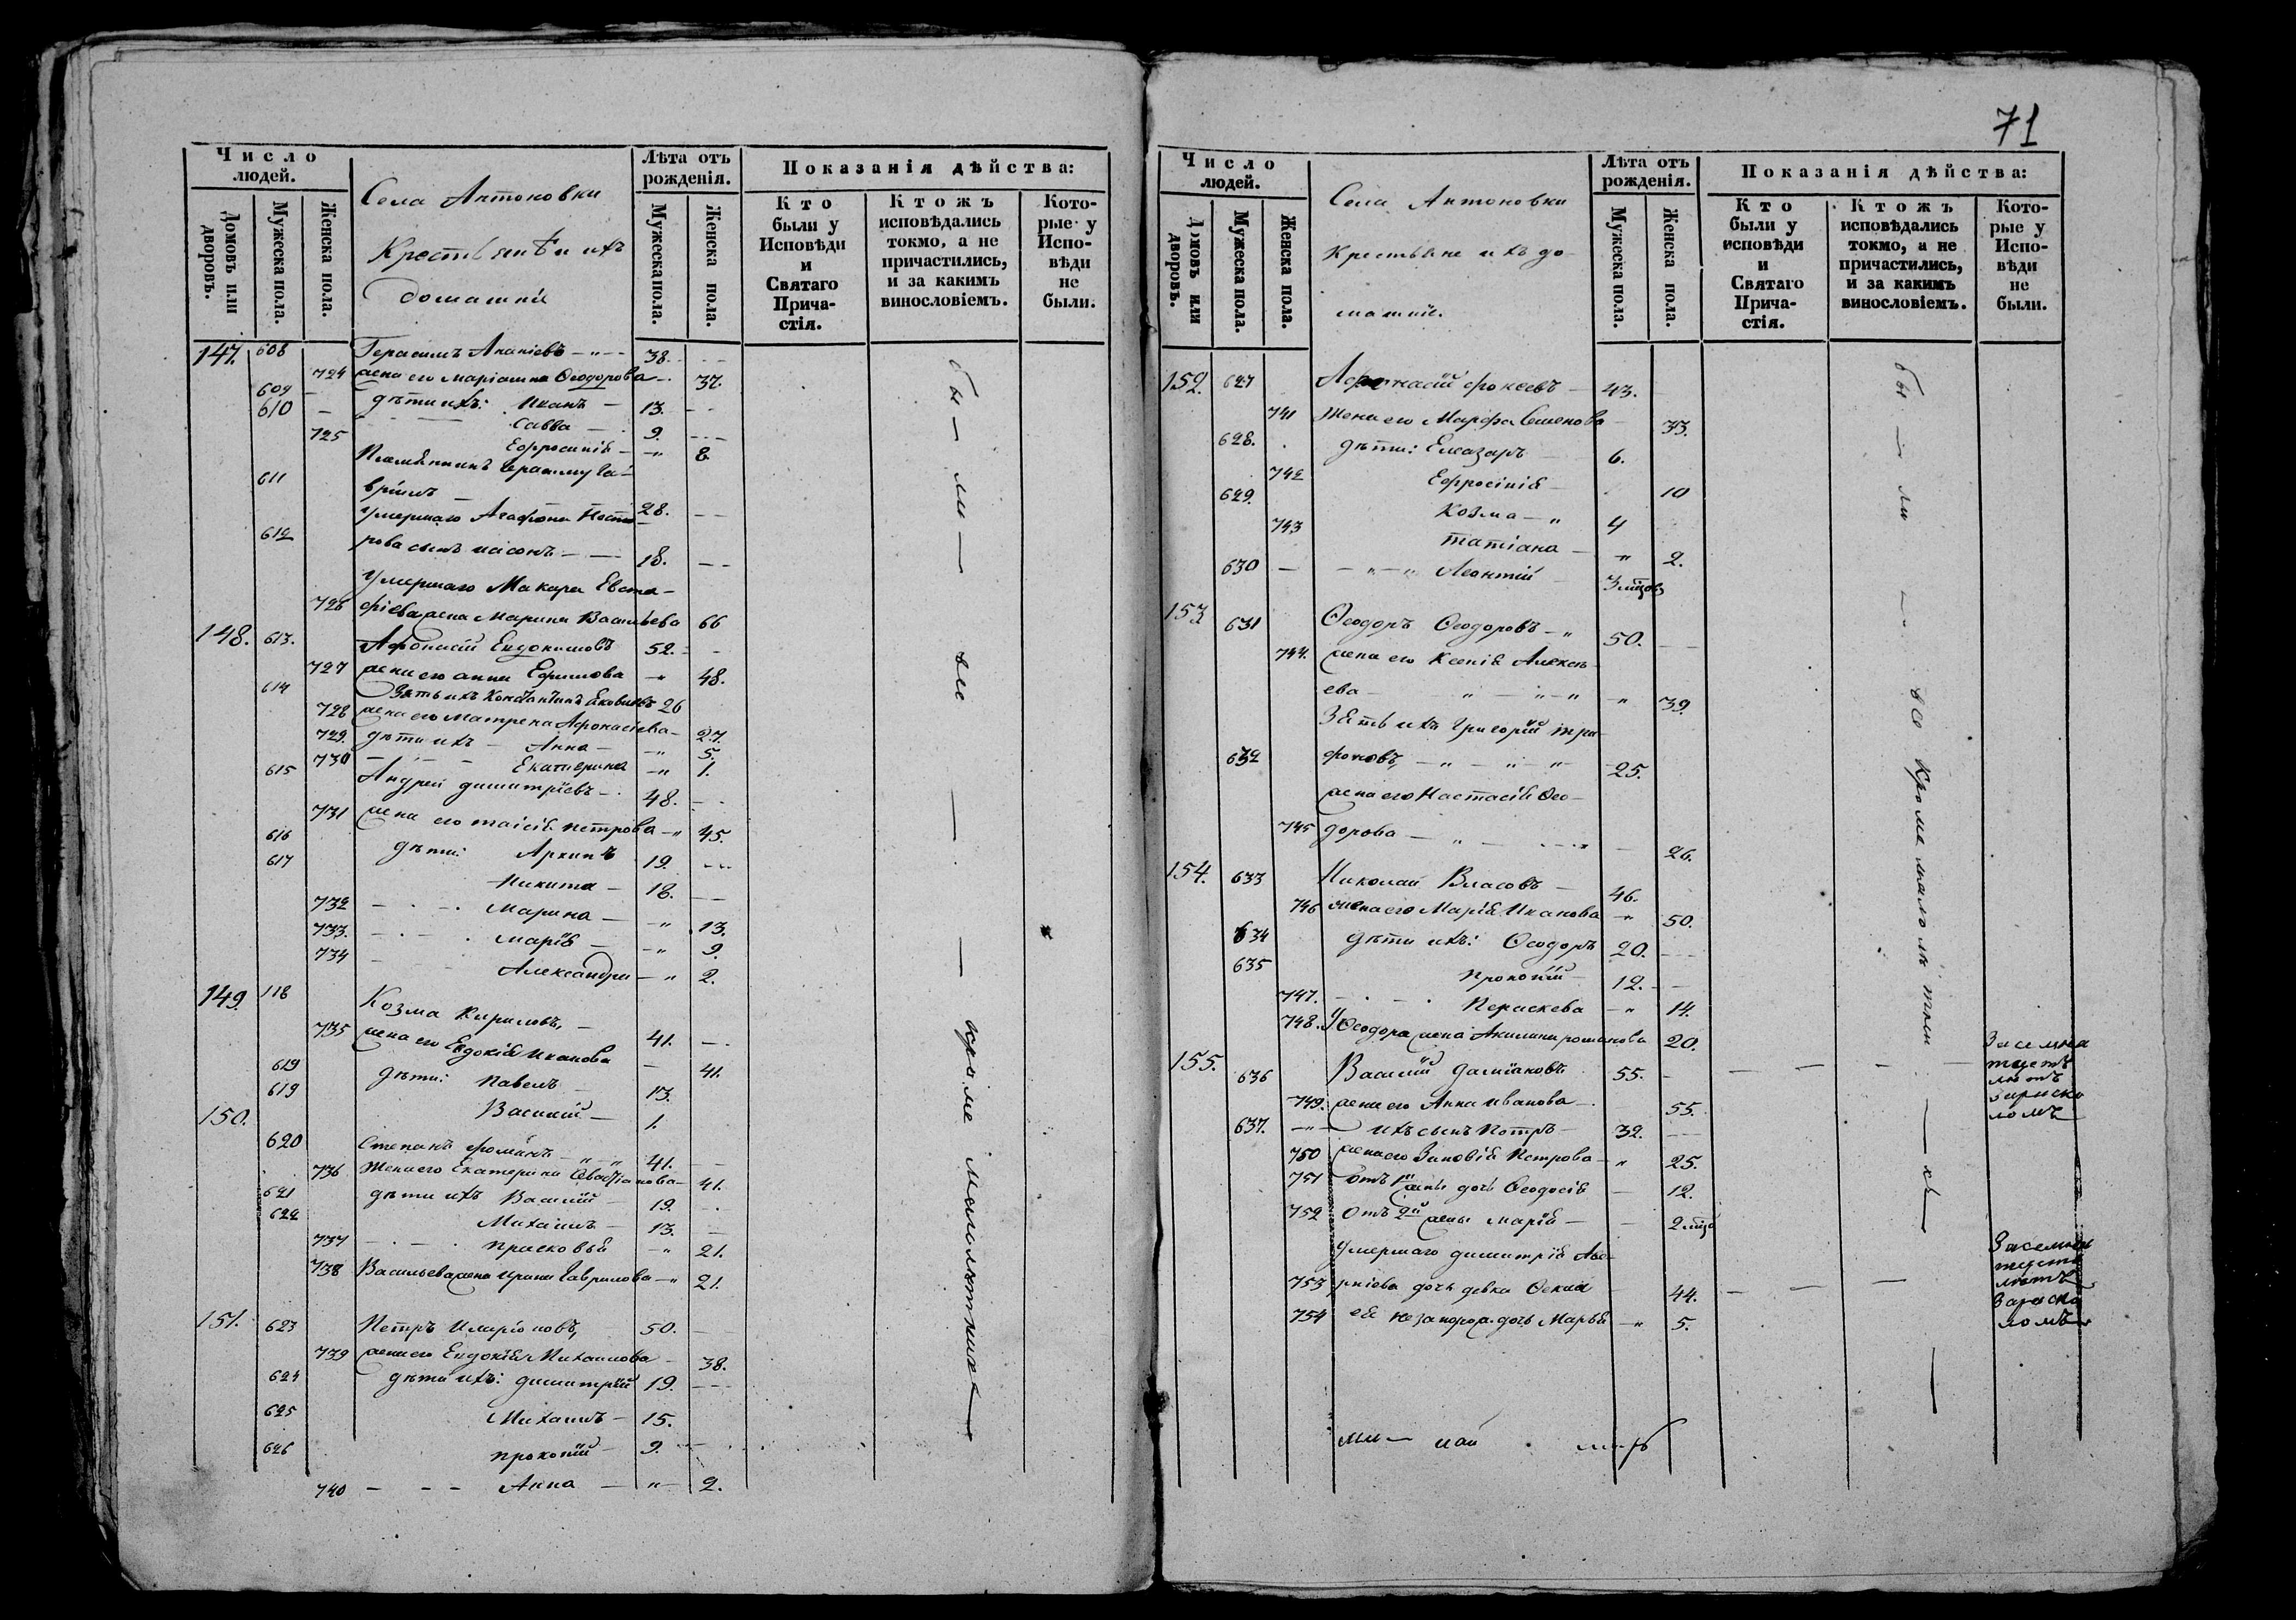 Число людей.
Домовъ или дворовъ.
Мужеска пола.
Женска пола.
Села Антоновки
Крестьянѣ и ихъ
домашнія
Лѣта отъ рожденія.
Мужеска пола.
Женска пола.
Показанія дѣйства:
Кто были у Исповѣди и Святаго Причастія.
Ктожъ исповѣдались токмо, а не причастились, и за какимъ винословіемъ.
Которые у Исповѣди не были.
147. 608 Герасимъ Ананіевъ 38.
724 жена его Маріамна Ѳеодорова 37.
609 дѣти ихъ: Иванъ 13.
610 Савва 9.
725 Ефросинія 8
611 Племянникъ Герасиму Гавріилъ 28.
612 умершаго Агафона Нестерова сынъ Іасонъ 18.
умершаго Макара Евста-
726 фіева жена Марина Васильева 66
148. 613. Афонасій Евдокимовъ 52.
727 жена его Анна Ефимова 48.
614 Зять ихъ Константинъ Яковлевъ 26
728 жена его Матрена Афонасіева 27.
729. дѣти ихъ Анна 5.
730 Екатерина 1.
615 Андрей Димитріевъ 48.
731 жена его Таисія Петрова 45.
616 дѣти: Архипъ 19.
617 Никита 18.
732 Марина 13.
733. Марія 9.
734 Александра 2.
149. 118 Козма Кириловъ, 41.
735 жена его Евдокія Иванова 41.
619 дѣти: Павелъ 13.
619 Василій 1.
150.
620 Степанъ Фоминъ 41.
736 Жена его Екатерина Севастіанова 41.
621 дѣти ихъ Василій 19.
622 Михаилъ 13.
737 Прасковья 21.
738 Васильева жена Ирина Гаврилова 21.
151. 623 Петръ Иларіоновъ, 50.
739 жена его Евдокія Михаилова 38.
624 дѣти ихъ: Димитрій 19.
625 Михаилъ 15.
626 Прокопій 9.
740 Анна 2.
бы — ли — все — кроме малолѣтнихъ
71
Число людей.
Домовъ или дворовъ.
Мужеска пола.
Женска пола.
Села Антоновки
Крестьяне и ихъ до-
машніе.
Лѣта отъ рожденія.
Мужеска пола.
Женска пола.
Показанія дѣйства:
Кто были у исповѣди и Святаго Причастія.
Ктожъ исповѣдались токмо, а не причастились, и за какимъ винословіемъ.
Которые у Исповѣди не были.
152. 627 Афонасій Фокеевъ 43.
741 Жена его Марфа Семенова 33.
628. дѣти: Елеазаръ 6.
742 Ефросінія 10
629. Козма 4
743 Татіана 2.
630 Леонтій
153. 631 Ѳеодоръ Ѳеодоровъ 50.
744. жена его Ксенія Алексѣ-
ева 39.
Зять ихъ Григорій Три-
632 фоновъ, 25.
жена его Настасія Ѳео-
745 дорова 26.
154. 633 Николай Власовъ 46.
746 жена его Марія Иванова 50.
634 дѣти ихъ: Ѳеодоръ 20.
635 Прокопій 12.
747. Пераскева 14.
748. У Ѳеодора жена Акилина Романова 20.
155. 636 Василій Даміановъ 55.
749. жена его Анна Иванова 55.
637. ихъ сынъ Петръ 32.
750 жена его Зиновія Петрова 25.
751 Отъ 1й жены дочь Ѳеодосія 12.
752 Отъ 2й жены Марія
умершаго Димитрія Аве-
753 ркіева дочь девка 44.
754 ея дочь Марья 5.
бы — ли — все кроме малолѣтнихъ